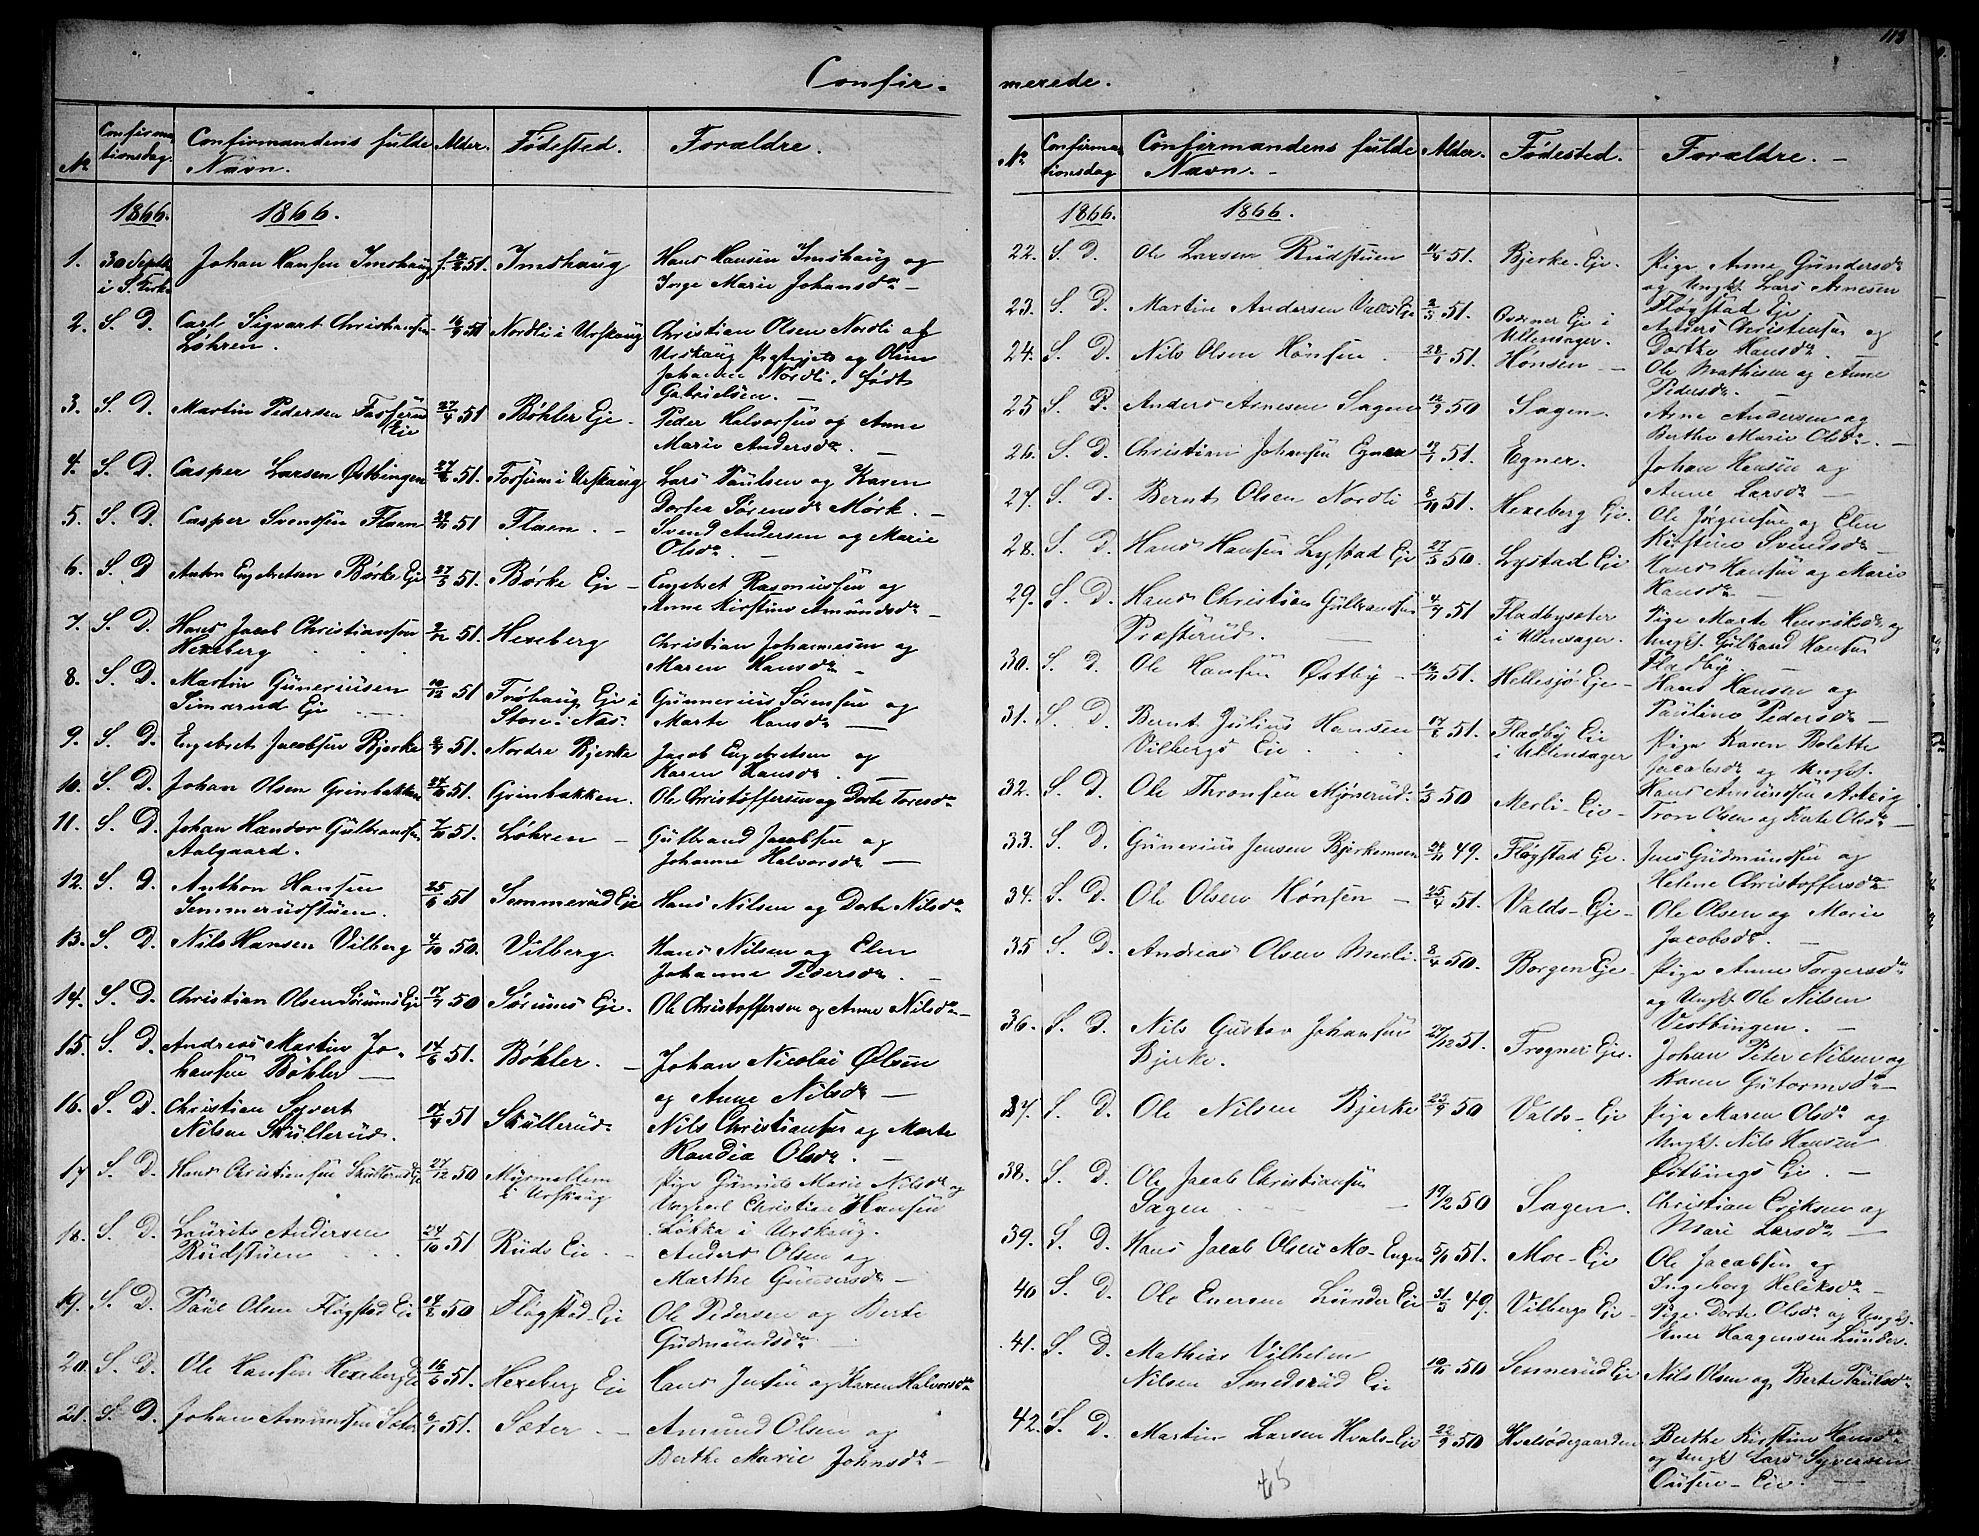 Confir-
No Confirmationsdag. Confirmandens fulde Navn. Alder. Fødested. Forældre.
1866. 1866.
1. 30 Septbr i S. Kirke Johan Hansen Imshaug 51. Imshaug Hans Hansen Imshaug og
Inge Marie Johansdr
2. S. D. Carl Sigvart Christiansen Løhren. 16/9 51 Nordli i Urskaug Christian Olsen Nordli af
Urskaug Præstegjeld og Oline
Johanne Nordli, født
Gabrielsen.
3. S. D. Martin Pedersen Fosserud Eie 27/4 51 Bøhler Eje. Peder Halvorsen og Anne
Marie Andersdr.
4. S. D. Casper Larsen Østbingen 51. Fossum i Urskaug Lars Paulsen og Karen
Dorthea Sørensdr Mørk.
5. S. D. Casper Svendsen Flaen 51 Flaen. Svend Andersen og Marie
Olsdr.
6. S. D Anton Engebretsen Børke Eje 27/5 51. Børke Eje Engebret Rasmussen og
Anne Kirstine Amundsdr
7. S. D. Hans Jacob Christiansen Hexeberg 51. Hexeberg Christian Johannesen og
Maren Hansdr
8. S. D. Martin Guneriusen Simarud Eje 10/12 51 Frøhaug Eje i Store-Næs. Gunnerius Sørensen og
Marte Hansdr
9. S. D. Engebret Jacobsen Bjerke 51. Nordre Bjerke Jacob Engebretsen og
Karen Hansdr.
10. S. D. Johan Olsen Grinbakken 51. Grinbakken. Ole Christoffersen og Dorte Toresdr
11. S. D. Johan Hændor Gulbrandsen Aalgaard. 51. Løhren Gulbrand Jacobsen og
Johanne Halvorsdr.
12. S. D. Anthon Hansen Semmerudstuen. 25/6 51 Semmerud Eje Hans Nilsen og Dorte Nilsdr
13. S. D. Nils Hansen Vilberg 4/10 50. Vilberg. Hans Nilsen og Elen
Johanne Pedersdr.
14. S. D. Christian Olsen Sørums Eje 17/7 50 Sørums Eje. Ole Christoffersen og Anne Nilsdr
15. S. D. Andreas Martin Johansen Bøhler 14/6 51. Bøhler. Johan Nicolai Olsen
og Anne Nilsdr
16. S. D. Christian Syvert Nilsen Skullerud. 51 Skullerud Nils Christiansen og Marte
Randia Olsdr.
17 S. D. Hans Christiansen Skullerud Eje 27/12 50 Myrmellem i Urskaug Pige Gunild Marie Nilsdr og
Ungkarl Christian Hansen
Løkka i Urskaug.
18. S. D. Laurits Andersen Rudstuen 24/10 51 Ruds Eie Anders Olsen og
Marthe Gundersdr
19. S. D. Paul Olsen Fløgstad Eie 14/8 50 Fløgstad Eje Ole Pedersen og Berte
Gudmundsdr
20. S. D. Ole Hansen Hexeberg Eje 16/6 51. Hexeberg Eje Hans Jensen og Karen Halvorsdr
21. S. D. Johan Amundsen Sæter 51. Sæter Amund Olsen og
Berthe Marie Johnsdr
113
merede.
No Confirmationsdag Confirmandens fulde Navn. Alder. Fødested. Forældre.
1866. 1866.
22. S. D. Ole Larsen Rudstuen 51. Bjerke-Eje. Pige Anne Gundersdr
og Ungk. Lars Arnesen
Fløgstad Eje
23. S. D. Martin Andersen Valds Eje 51. Eje i Ullensager. Anders Christensen og
Dorthe Hansdr.
24. S. D. Nils Olsen Hønsen 51. Hønsen Ole Mathisen og Anne
Pedersdr.
25 S. D. Anders Arnesen Sagen 12/9 50 Sagen. Arne Andersen og
Berthe Marie Olsdr.
26. S. D. Christian Johansen Egner 51. Egner. Johan Hansen og
Anne Larsdr
27. S. D. Bernt Olsen Nordli 51. Hexeberg Eje. Ole Jørgensen og Elen
Kirstine Svendsdr
28. S. D. Hans Hansen Lystad Eje 27/5 50. Lystad Eje Hans Hansen og Marie
Hansdr
29. S. D. Hans Christian Gulbrandsen Præsterud. 51 Fladbyseter i Ullensager. Pige Marte Henriksdr og
Ungk. Gulbrand Hansen
Fladby.
30. S. D. Ole Hansen Østby 51. Hellesjø Eje Hans Hansen og
Pauline Pedersdr
31. S. D. Bernt Julius Hansen Vilbergs Eie 51. Fladby Eie i Ullensager Pige Karen Bolette
Jacobsdr og Ungk.
Hans Amundsen Asteig
32. S. D. Ole Thronsen Mjønerud. 50 Merli-Eie Tron Olsen og Berte Olsdr
33. S. D. Gunerius Jensen Bjerkemoen 49. Fløgstad Eje. Jens Gudmundsen og
Helene Christoffersdr
34. S. D. Ole Olsen Hønsen 25/4 51. Valds-Eje Ole Olsen og Marie
Jacobsdr.
35 S. D. Andreas Olsen Merli. 8/4 50. Borgen Eje Pige Anne Torgersdr
og Ungk. Ole Nilsen
Vestbingen.
36. S. D. Nils Gustav Johansen Bjerke. 27/12 51. Frogner Eje. Johan Peter Nilsen og
Karen Gutormsdr
37. S. D. Ole Nilsen Bjerke 23/9 50 Valds-Eje Pige Maren Olsdr og
Ungk. Nils Hansen
Østbings Eje.
38. S. D. Ole Jacob Christiansen Sagen 19/2 50 Sagen. Christian Eriksen og
Mari Larsdr
39. S. D. Hans Jacob Olsen Mo-Engen 51. Moe-Eje Ole Jacobsen og
Ingeborg Heleksdr
40 S. D. Ole Enersen Lunder Eie 31/3 49. Vilbergs Eje Pige Dorte Olsdr og Ungk.
Ener Haagensen Lunder.
41. S. D. Mathias Vilhelm Nilsen Smedsrud Eie 50 Sennerud Eje Nils Olsen og Berte Paulsdr
42. S. D. Martin Larsen Hvals-Eie 22/9 50 Hvalsødegaarden Berthe Kirstine Hansdr
og Ungk Lars Syversen
Ousen-Eie.
65